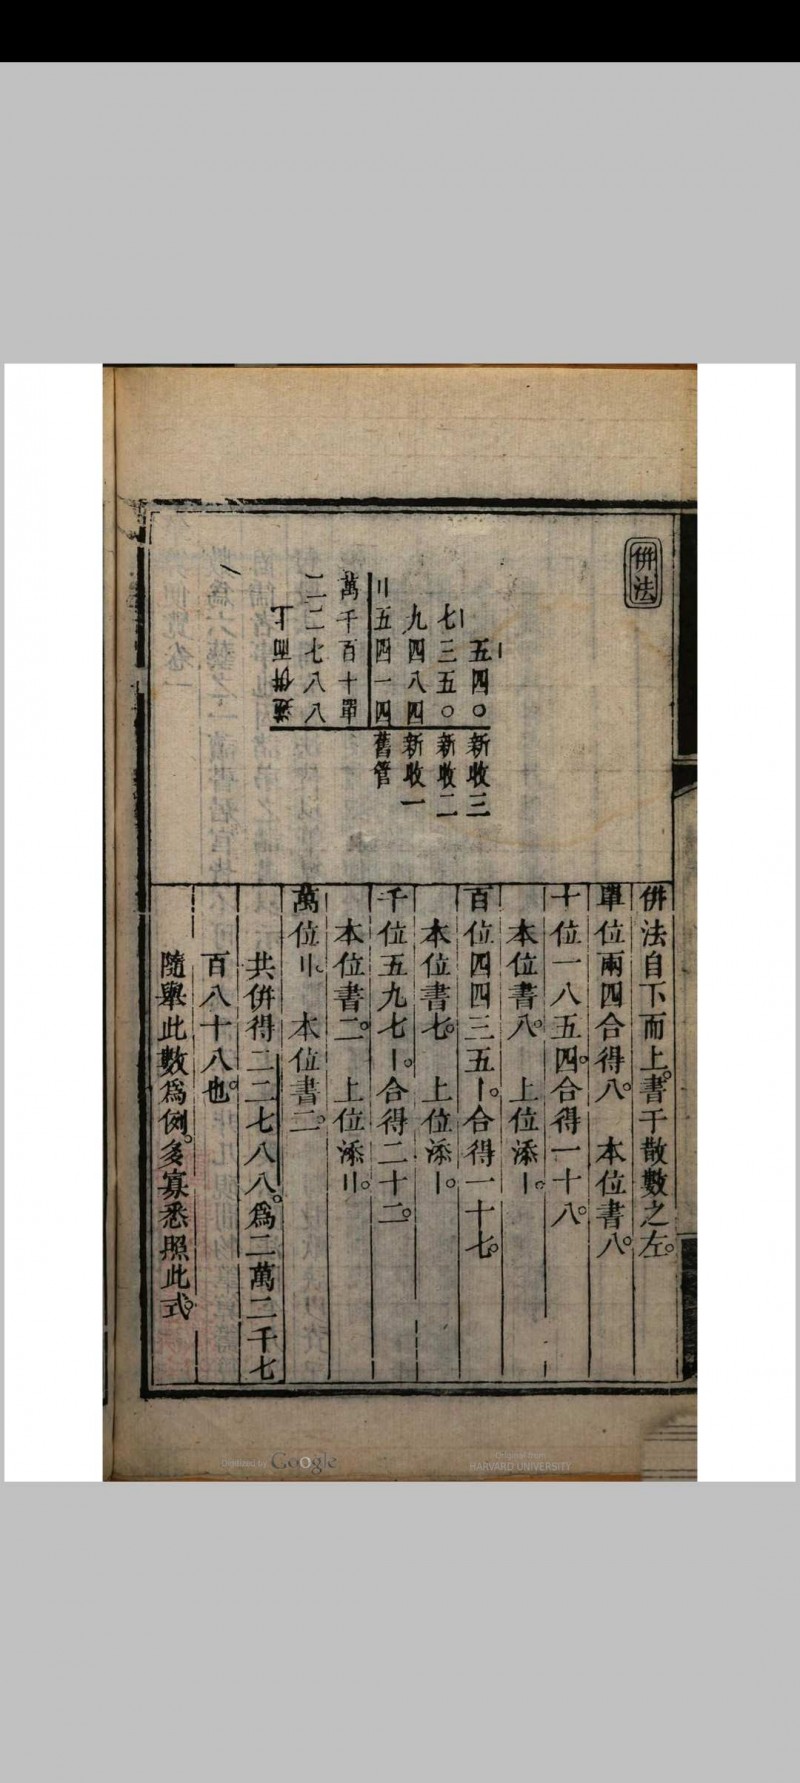 併法
〡五四〇 新收三
〡七三五〇 新收二
九四八四 新收一
〢五四一四 舊管
萬千百十單
二二七八八
併而上
併法自下而上。書于散數之左。
單位兩四合得八。 本位書八。
十位一八五四。合得一十八。
本位書八。 上位添〡。
百位四四三五〡。合得一十七。
本位書七。 上位添〡。
千位五九七〡。合得二十二。
本位書二。 上位添〢。
萬位〢。 本位書二。
共併得二二七八八。爲二萬二千七
百八十八也。
隨舉此數爲例。多寡悉照此式。
Digitized by Google
Original from
HARVARD UNIVERSITY